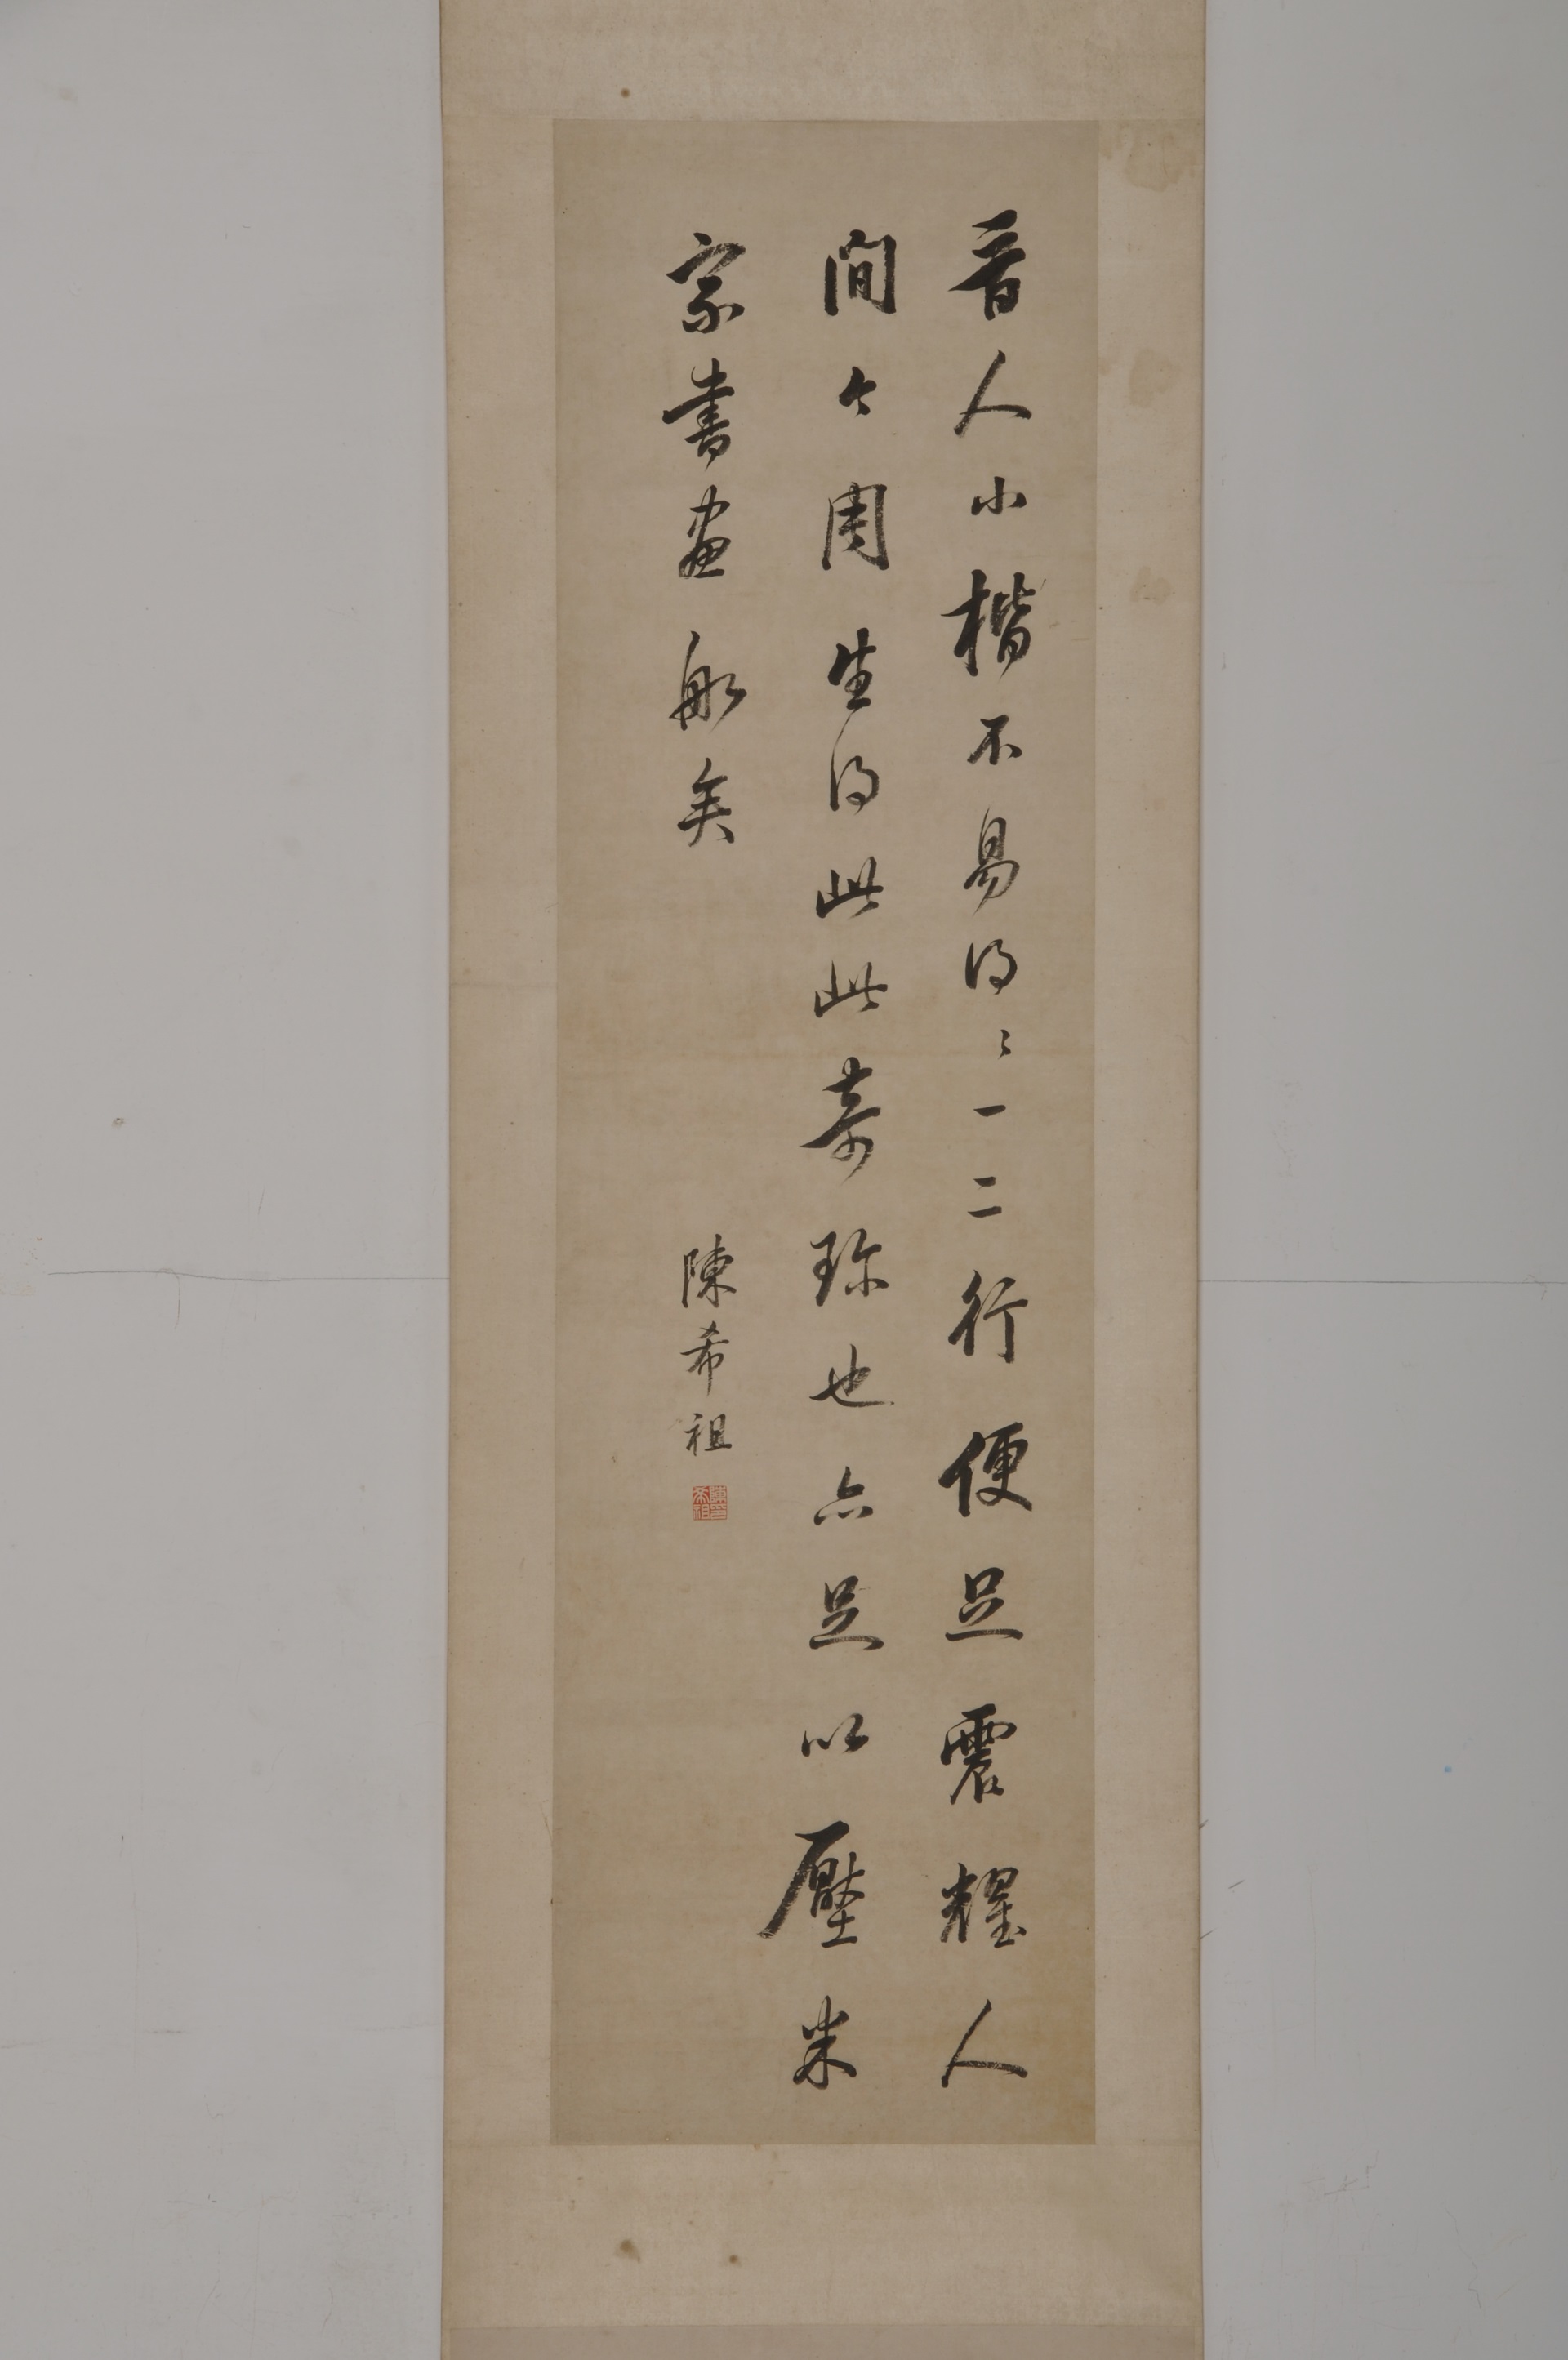 晉人小楷不易得〻一二行便足震耀人
間今周生得此此奇珍也亦足以壓米
家書畫船矣
陳希祖
陳印希祖